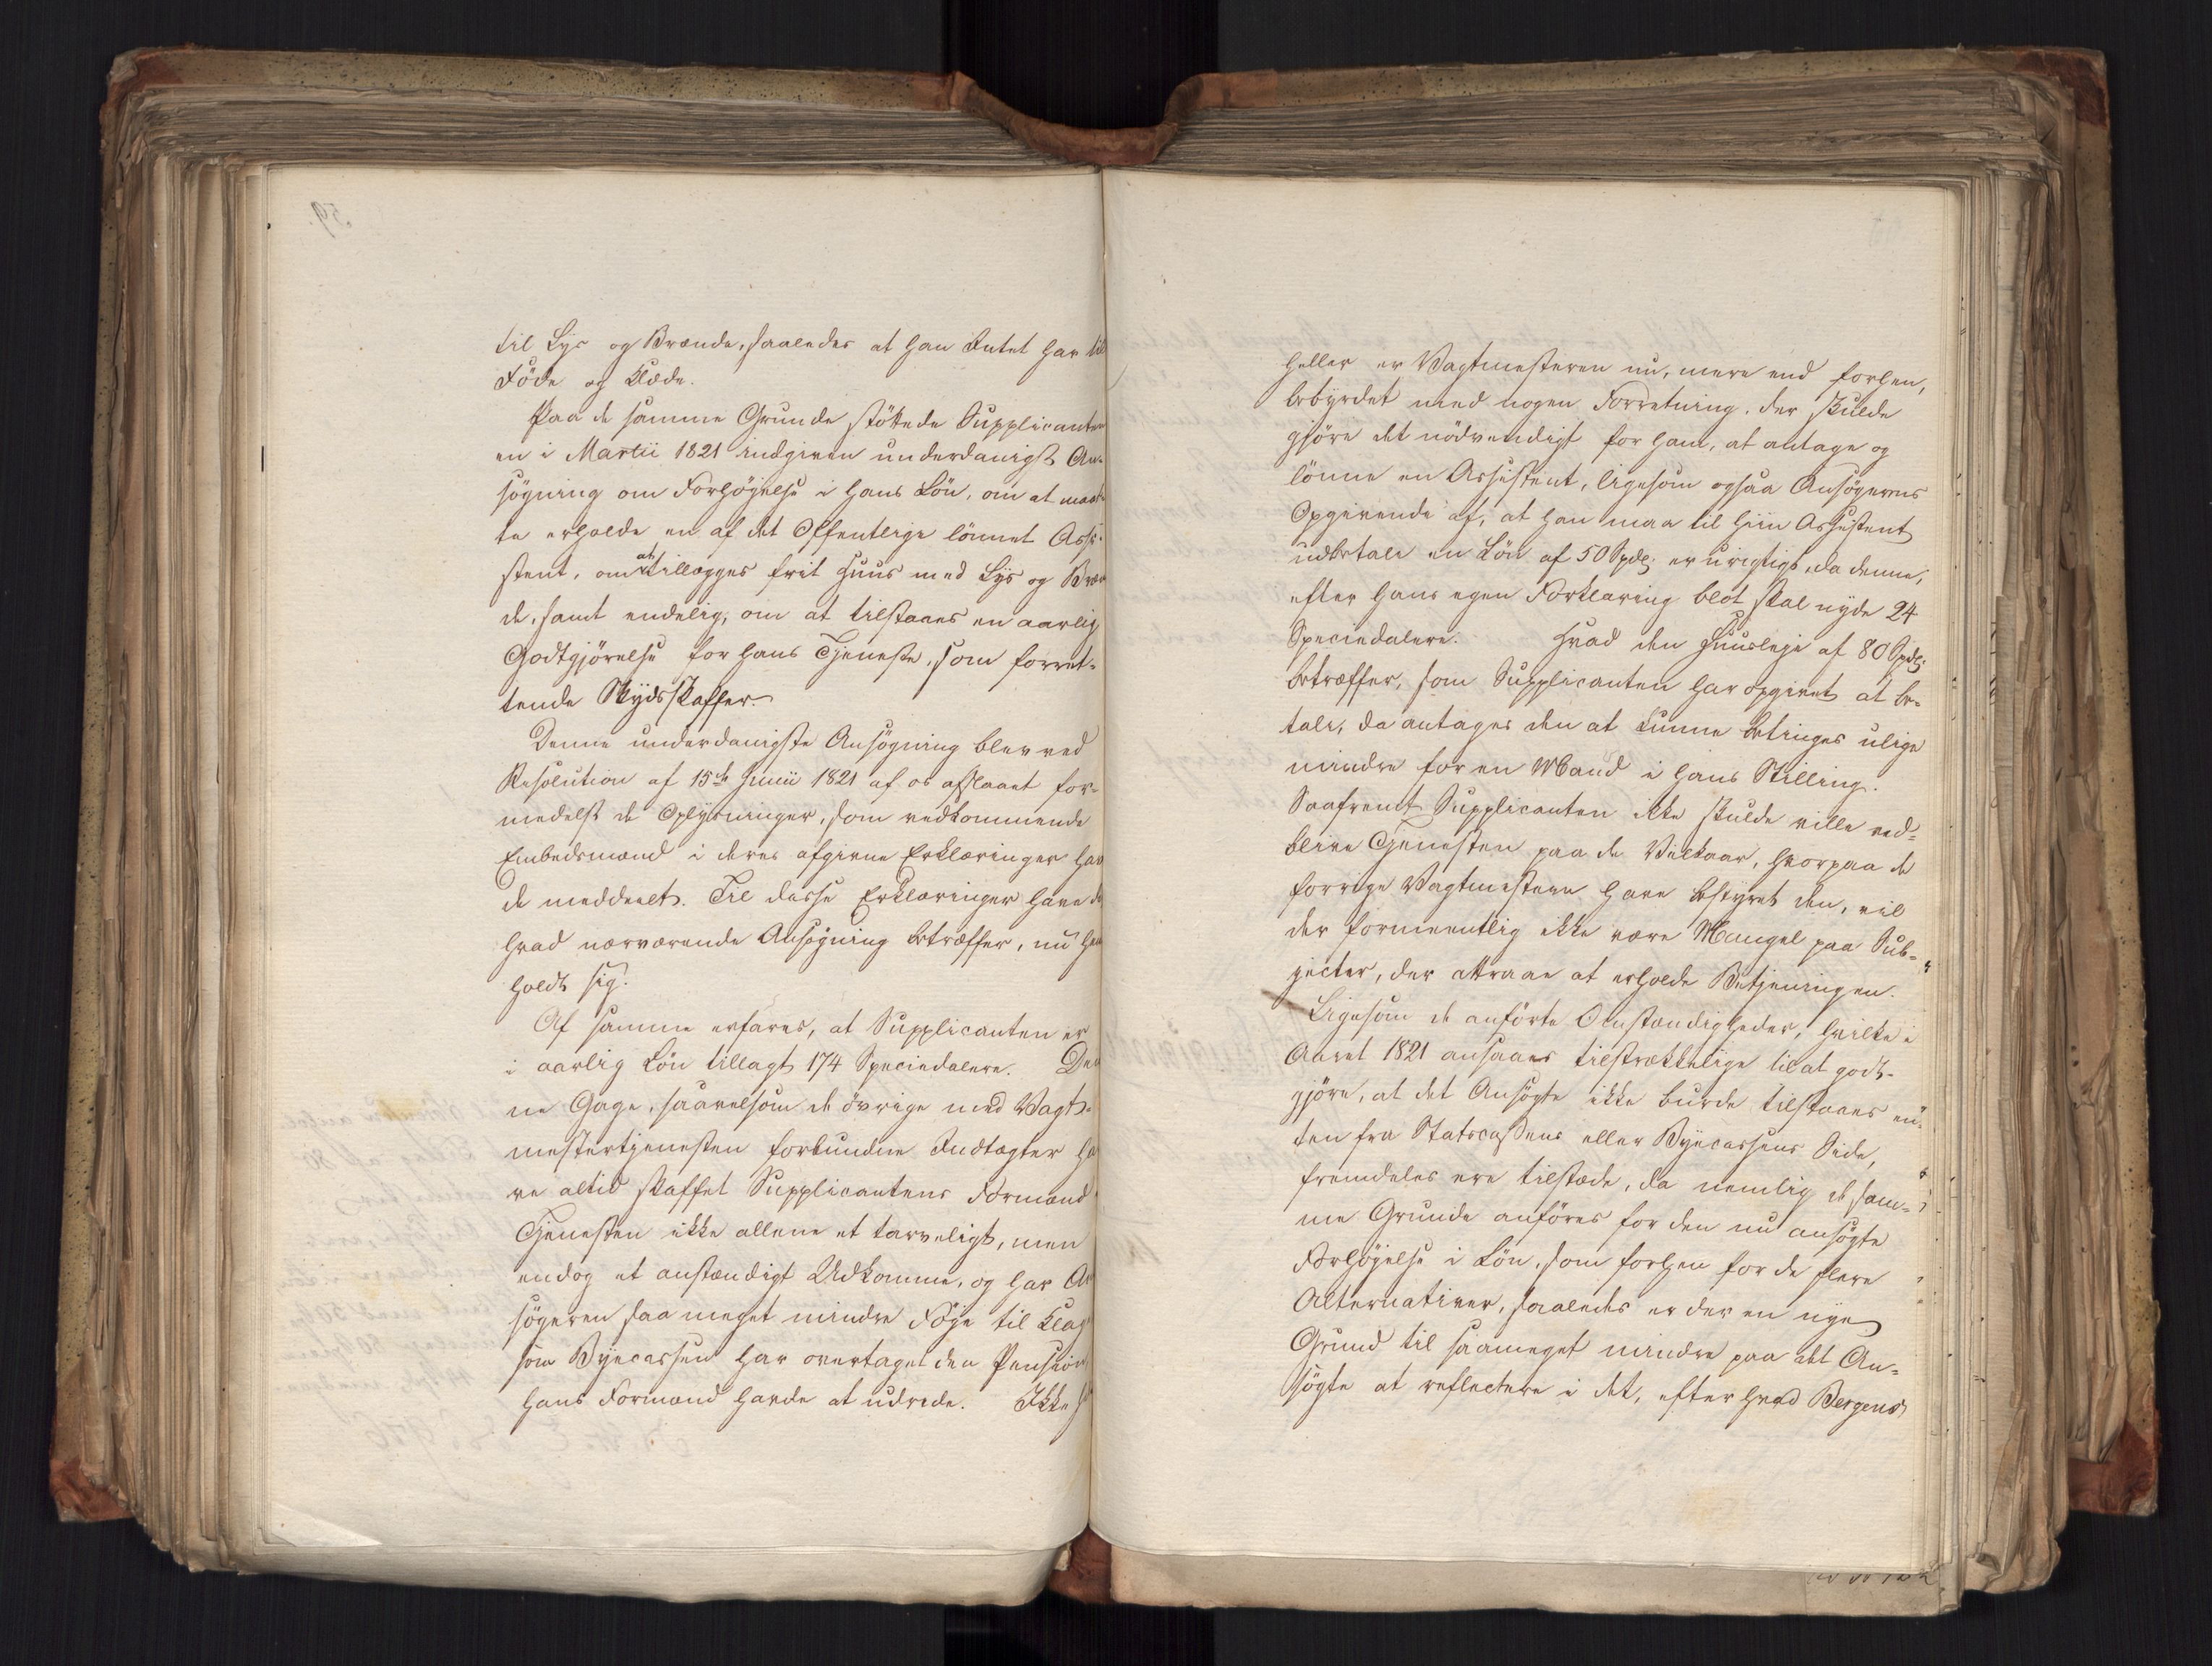 til Lys og Brænde, saaledes at han Intet har til
Föde og Klæde.
Paa de samme Grunde stöttede Supplicanten
en i Martii 1821 indgiven underdanigst An-
søgning om Forhöyelse i hans Lön, om at maat-
te erholde en af det Offentlige lönnet Assi-
stent, om at tillægges frit Huus med Lys og Bræn
de, samt endelig, om at tilstaaes en aarlig
Godtgjörelse for hans Tjeneste, som forret-
tende Skydsskaffer.
Denne underdanigste Ansögning blev ved
Resolution af 15de Junii 1821 af os afslaaet for-
medelst de Oplysninger, som vedkommende
Embedsmænd i deres afgivne Erklæringer hav
de meddeelt. Til disse Erklæringer have de
hvad nærværende Ansögning betræffer, nu hen
holdt sig.
Af samme erfares, at Supplicanten er
i aarlig Lön tillagt 174 Speciedalere. Den
ne Gage, saavelsom de övrige med Vagt-
mestertjenesten forbundne Indtægter ha
ve altid skaffet Supplicantens Formænd i
Tjenesten ikke allene et tarveligt, men
endog et anstændigt Udkomme, og har An
sögeren saa meget mindre Föje til Klag
som Byecassen har overtaget den Pension
hans Formænd havde at udrede. Ikke
heller er Vagtmesteren nu, mere end forhen,
bebyrdet med nogen Forretning, der skulde
gjöre det nödvendigt for ham, at antage og
lönne en Assistent, ligesom ogsaa Ansögerens
Opgivende af, at han maa til hiin Assistent
udbetale en Lön af 50 Spdlr. er urigtigt, da denne,
efter hans egen Forklaring blot skal nyde 24
Speciedalere. Hvad den Huusleje af 80 Spdlr.
betræffer, som Supplicanten har opgivet at be-
tale, da antages den at kunne betinges ulige
mindre for en Mand i hans Stilling.
Saafremt Supplicanten ikke skulde ville ved-
blive Tjenesten paa de Vilkaar, hvorpaa de
forrige Vagtmestere have bestyret den, vil
der formeentlig ikke være Mangel paa Sub-
jecter, der attraae at erholde Betjeningen.
Ligesom de anförte Omstændigheder, hvilke i
Aaret 1821 ansaaes tilstrækkelige til at godt-
gjöre, at det Ansögte ikke burde tilstaaes en-
ten fra Statscassens eller Byecassens Side,
fremdeles ere tilstæde, da nemlig de sam-
me Grunde anföres for den nu ansögte
Forhöjelse i Lön, som forhen for de flere
Alternativer, saaledes er der en nye
Grund til saameget mindre paa det An-
sögte at reflectere i det, efter hvad Bergens